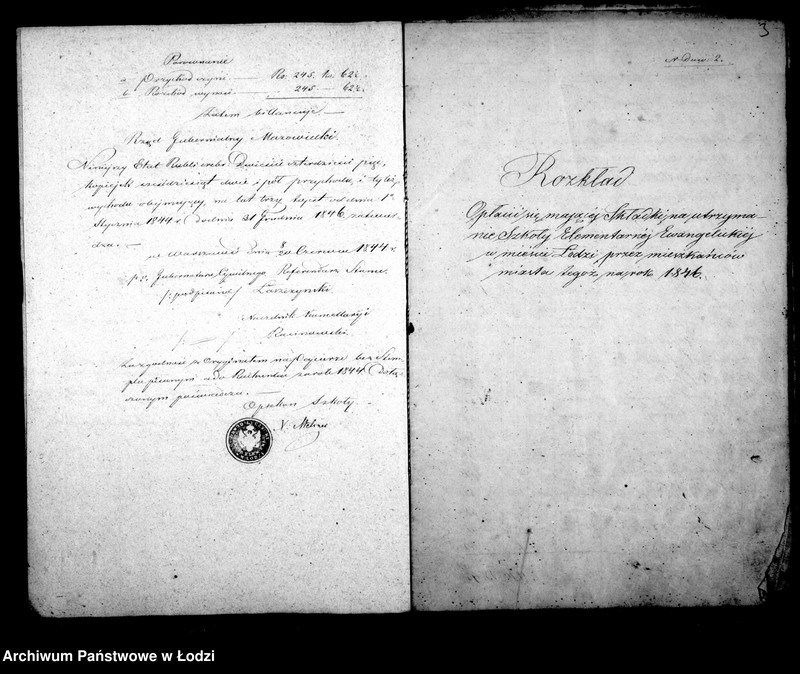 Porownanie
a. Przychód czyni — Rs. 245. k. 62½.
b. Rozchód wynosi — 245 — 62½.
Zatem billansuje —
Rząd Gubernialny Mazowiecki.
Niniejszy Etat Rubli srebr. Dwieście czterdzieści pięć,
kopiejek sześćdziesiąt dwie i pół przychodu, i tyleż
wychodu obejmujący, na lat trzy to jest od dnia 1º
Stycznia 1844 r. do dnia 31 Grudnia 1846 zatwier
dza. —
w Warszawie dnia 8/20 Czerwca 1844 r.
p.o. Gubernatora Cywilnego Referendarz Stanu
/: podpisano / Łaszczyński
Naczelnik Kancellaryi
Za zgodność z Oryginałem na Papierze bez Stem
pla pisanym a do Rachunku za rok 1844 dołą-
czonym poświadcza. —
Opiekun Szkoły
3
N Dow. 2.
Rozkład
Opłacić się mającej Składki, na utrzyma-
nie Szkoły Elementarnéj Ewangelickiéj
w mieście Łodzi przez mieszkańców
miasta tegoż, na rok 1846.
Archiwum Państwowe w Łodzi